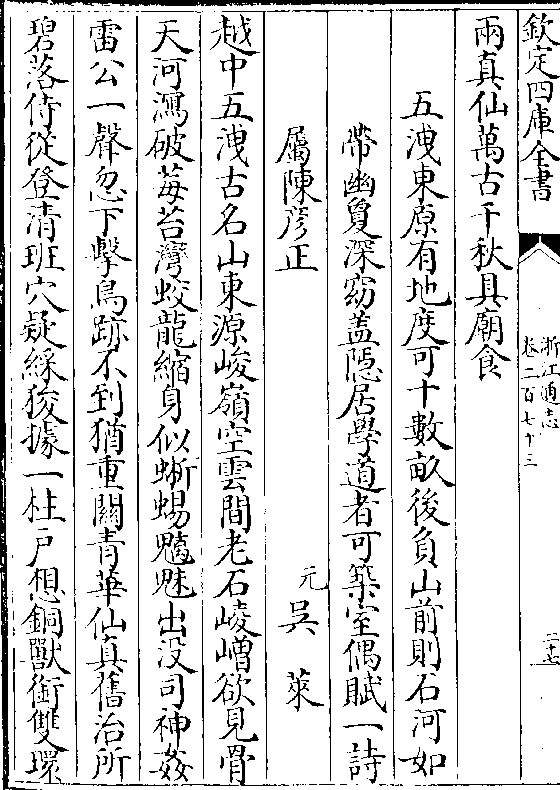 欽定四庫全書
浙江通志
卷二百七十三
二十七
兩真仙萬古千秋具廟食
五洩東原有地度可十數畝後負山前則石河如
帶幽敻深窈蓋隱居學道者可築室偶賦一詩
屬陳彥正
元 吳萊
越中五洩古名山東源峻嶺空雲間老石崚嶒欲見骨
天河瀉破莓苔灣蛟龍縮身似蜥蜴魑魅出没司神姦
雷公一聲忽下擊鳥跡不到猶重關青華仙真舊治所
碧落侍從登清班穴疑綵狻據一柱戸想銅獸銜雙環